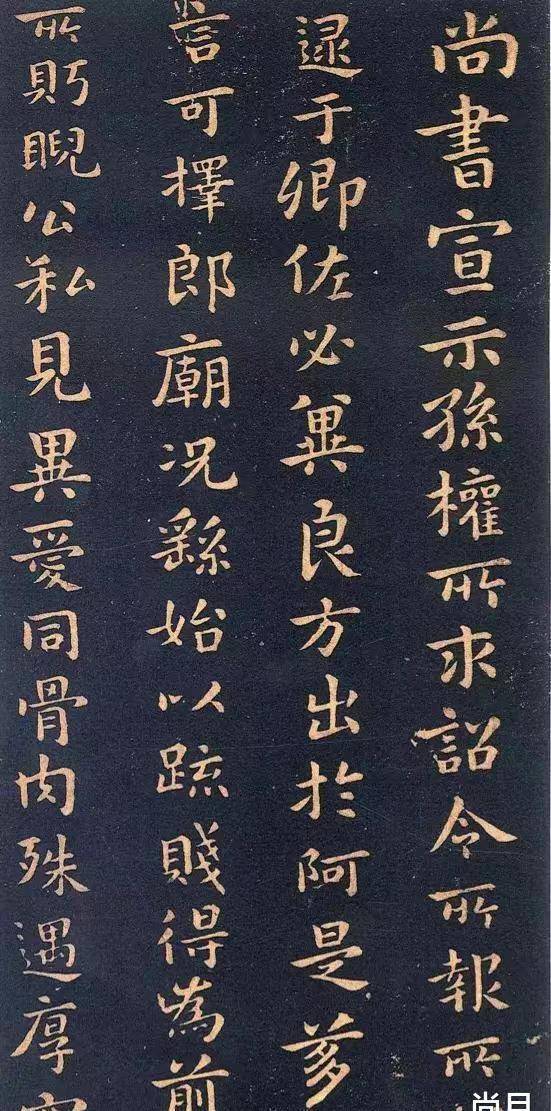 尚書宣示孫權所求詔令所報所
逮于卿佐必兾良方出於阿是蒭
言可擇郎廟况繇始以疏賤得為前
所眄睨公私見異愛同骨肉殊遇厚
尚月